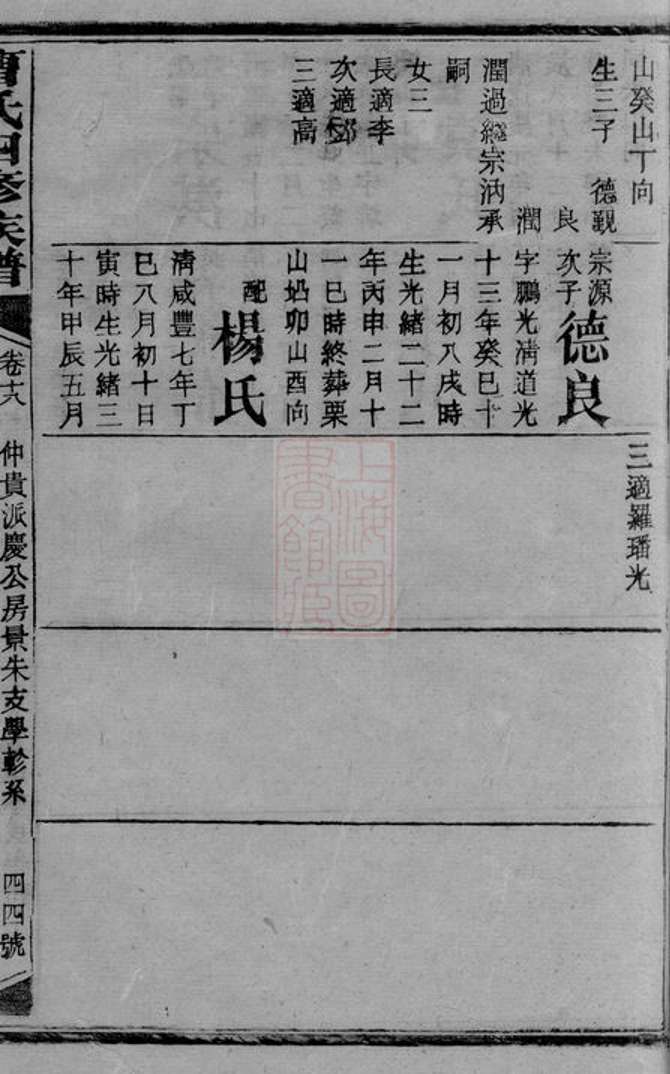 山癸山丁向
生三子 德覲
良
潤
潤過繼宗汭承
嗣
女三
長適李
次適鄧
三適高
宗源
次子
德良
字鵬光淸道光
十三年癸巳十
一月初八戌時
生光緒二十二
年丙申二月十
一巳時終葬栗
山㘭卯山酉向
配
楊氏
淸咸豐七年丁
巳八月初十日
寅時生光緒三
十年甲辰五月
三適羅璠光
曹氏四修族譜
卷十八
仲貴派慶公房景朱支學軫系
四四號
上海圖
書館藏